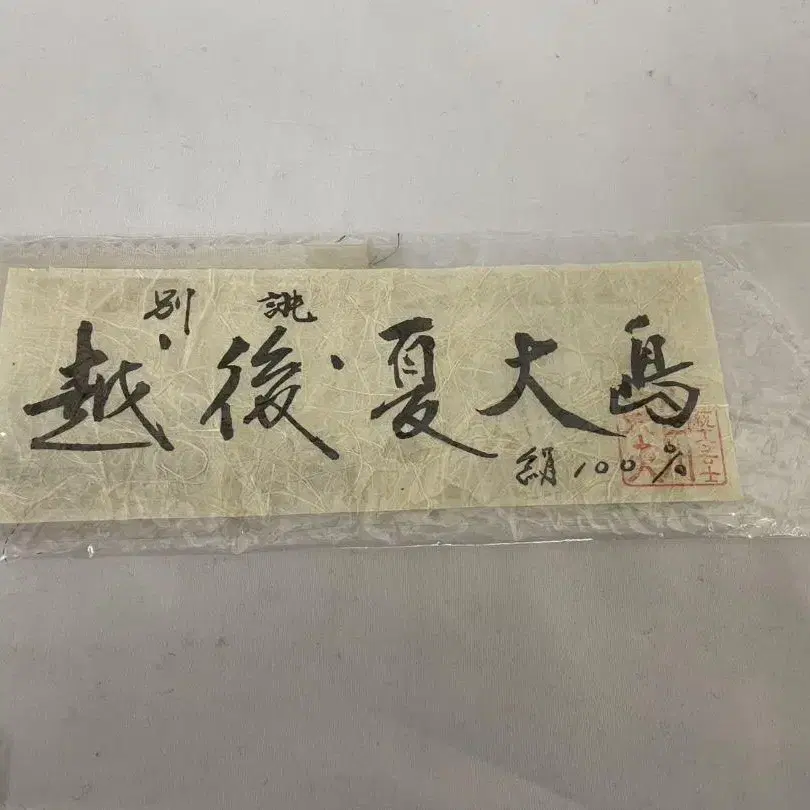 別誂
越後・夏大島
絹100%